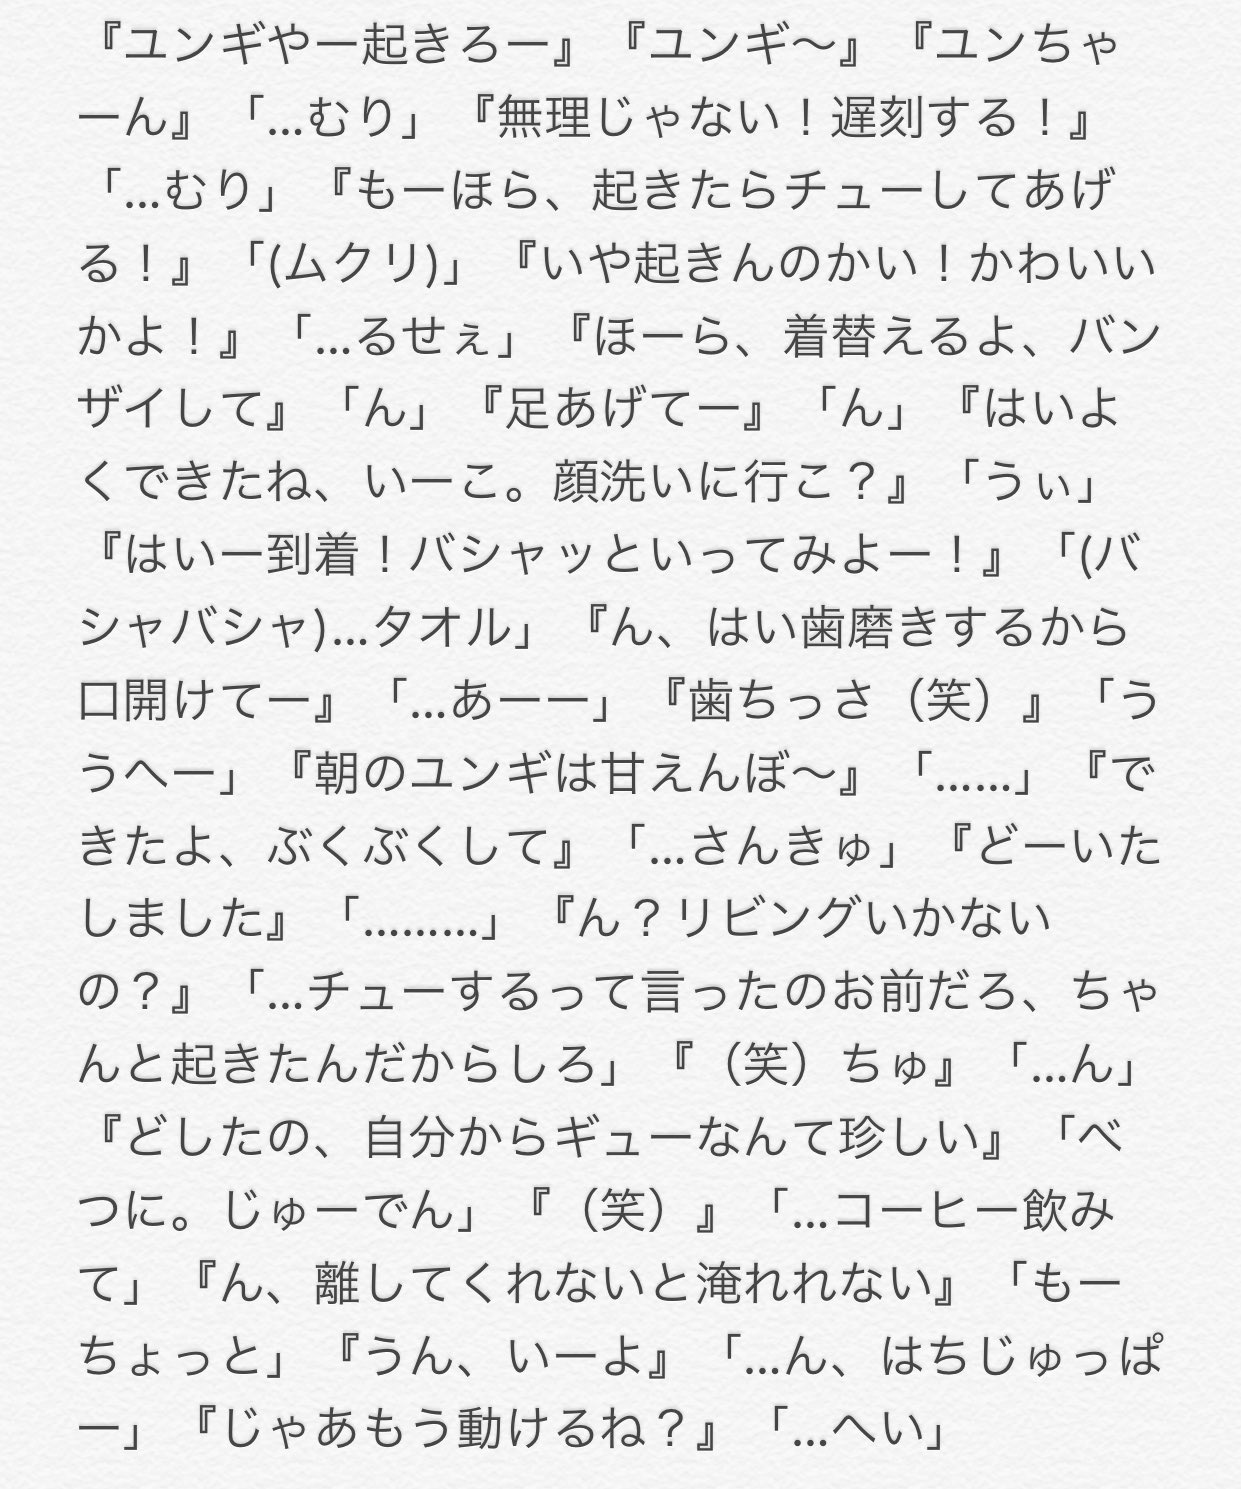 『ユンギやー起きろー』『ユンギ〜』『ユンちゃ
ーん』「…むり」『無理じゃない！遅刻する！』
「…むり」『もーほら、起きたらチューしてあげ
る！』「(ムクリ)」『いや起きんのかい！かわいい
かよ！』「…るせぇ」『ほーら、着替えるよ、バン
ザイして』「ん」『足あげてー』「ん」『はいよ
くできたね、いーこ。顔洗いに行こ？』「うぃ」
『はいー到着！バシャッといってみよー！』「(バ
シャバシャ)…タオル」『ん、はい歯磨きするから
口開けてー』「…あーー」『歯ちっさ（笑）』「う
うへー」『朝のユンギは甘えんぼ〜』「……」『で
きたよ、ぶくぶくして』「…さんきゅ」『どーいた
しました』「………」『ん？リビングいかない
の？』「…チューするって言ったのお前だろ、ちゃ
んと起きたんだからしろ」『（笑）ちゅ』「…ん」
『どしたの、自分からギューなんて珍しい』「べ
つに。じゅーでん」『（笑）』「…コーヒー飲み
て」『ん、離してくれないと淹れれない』「もー
ちょっと」『うん、いーよ』「…ん、はちじゅっぱ
ー」『じゃあもう動けるね？』「…へい」